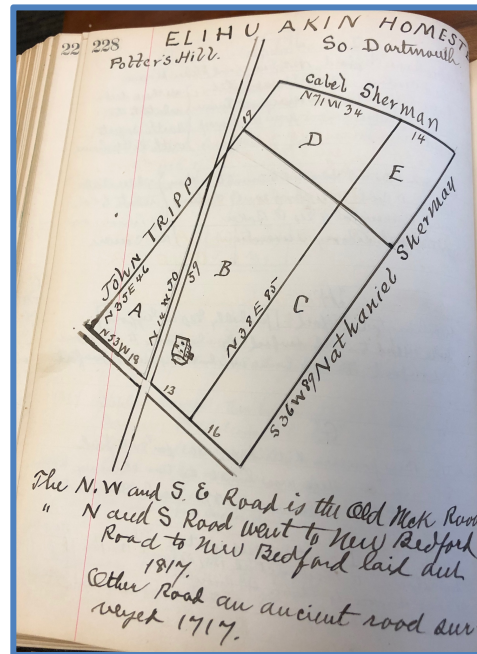 22 228
ELIHU AKIN HOMEST
So. Dartmouth
Potter's Hill.
Cabel Sherman
N71W34
19
14
D
E
JOHN TRIPP
N35E46
A
N14W50
59
B
N38E85
C
S36W89 Nathaniel Sherman
N53W18
13
16
The N.W and S.E Road is the Old Mck Road
" N and S Road went to New Bedford
Road to New Bedford laid out
1817.
Other Road an ancient road sur
veyed 1717.